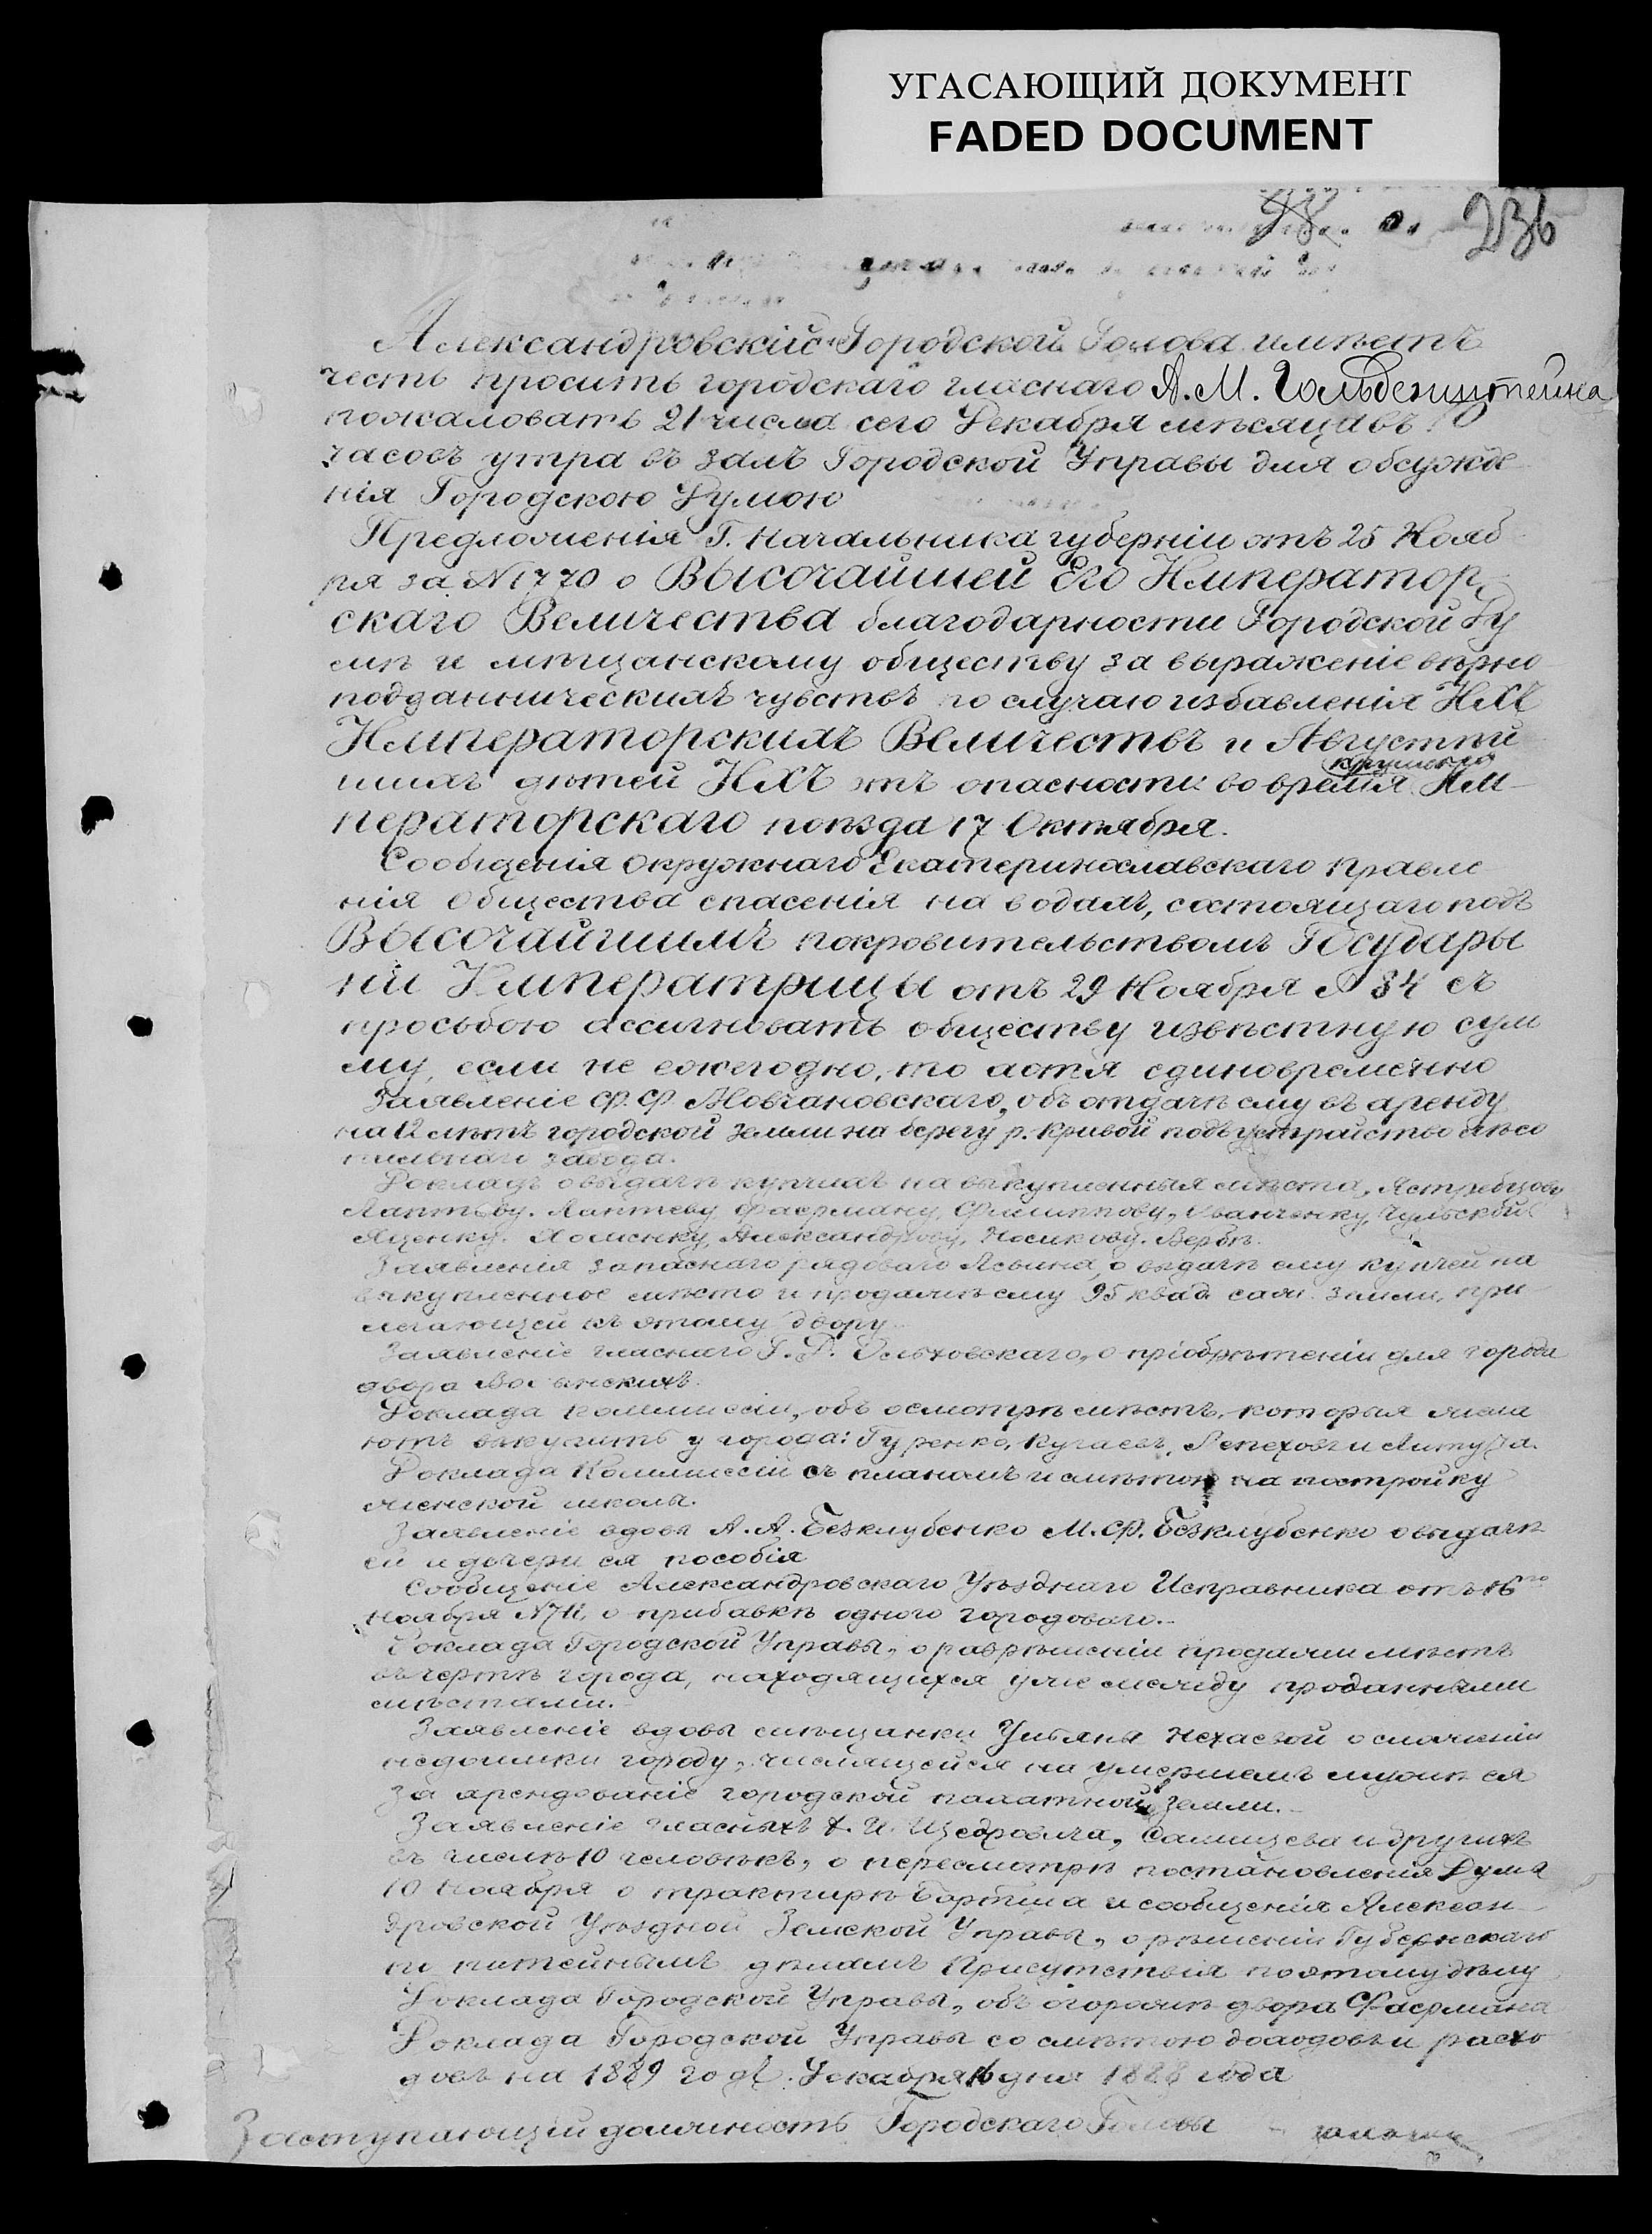 УГАСАЮЩИЙ ДОКУМЕНТ
FADED DOCUMENT
98
236
Александровскій Городской Голова имѣетъ
честь просить городскаго гласнаго А. М. Гольденштейна
пожаловать 21 числа сего Декабря мѣсяца въ
часовъ утра въ залъ Городской Управы для обсужде
нія Городскою Думою
Предложенія Г. Начальника губерніи отъ 25 Нояб
ря за № 1770 о Высочайшей Его Император-
скаго Величества благодарности Городской Ду
мѣ и мѣщанскому обществу за выраженіе вѣрно
подданническихъ чувствъ по случаю избавленія Ихъ
Императорскихъ Величествъ и Августѣй
шихъ дѣтей Ихъ отъ опасности во время крушенія Им-
ператорскаго поѣзда 17 Октября.
Сообщенія Окружнаго Екатеринославскаго Правле
нія Общества спасенія на водахъ, состоящаго подъ
Высочайшимъ покровительствомъ Государы
ни Императрицы отъ 29 Ноября № 34 съ
просьбою ассигновать обществу извѣстную сум
му, если не ежегодно, то хотя единовременно
Заявленіе Ф. Ф. Мовчановскаго, объ отдачѣ ему въ аренду
на 12 лѣтъ городской земли на берегу р. Кривой подъ устройство лѣсо
пильнаго завода.
Докладъ о выдачѣ купчихъ на выкупленныя мѣста, Ястребцову
Лаптеву. Лаптеву Фаерману, Филиппову, Иванченку, Чульской
Яценку. Хоменку, Александрову, Носикову. Вербѣ.
Заявленія запаснаго рядоваго Явина, о выдачѣ ему купчей на
выкупленное мѣсто и продажѣ ему 95 квад. саж. земли, при
легающей къ этому двору.
Заявленіе гласнаго Ольховскаго, о пріобрѣтеніи для города
двора
Доклада Коммиссіи, объ осмотрѣ мѣстъ, которыя жела
ютъ выкупить у города: Гуренко, Кугаевъ, Репеховъ и
Доклада Коммиссіи съ планомъ и смѣтою на постройку
женской школы.
Заявленіе вдовы А. А. Безклубенко М. Ф. Безклубенко о выдачѣ
ей и дочери ея пособія
Сообщеніе Александровскаго Уѣзднаго Исправника отъ 16го
Ноября о прибавкѣ одного городоваго.-
Доклада Городской Управы, о разрѣшеніи продажи мѣстъ
въ чертѣ города, находящихся уже между проданными
мѣстами.-
Заявленіе вдовы мѣщанки Ульяны Нехаевой о сложеніи
недоимки городу, числящейся на умершемъ мужѣ ея
за арендованіе городской пахатной земли.-
Заявленіе гласныхъ Х. И. Щедровича, Самищева и другихъ
въ числѣ 10 человѣкъ, о пересмотрѣ постановленія Думы
10 Ноября о трактирѣ Бартиша и сообщенія Алексан
дровской Уѣздной Земской Управы, о рѣшеніи Губернскаго
по питейнымъ дѣламъ Присутствія по этому дѣлу
Доклада Городской Управы, объ огорожѣ двора Фаермана
Доклада Городской Управы со смѣтою доходовъ и расхо
довъ на 1889 годъ. Декабря 16 дня 1888 года
Заступающій должность Городскаго Головы